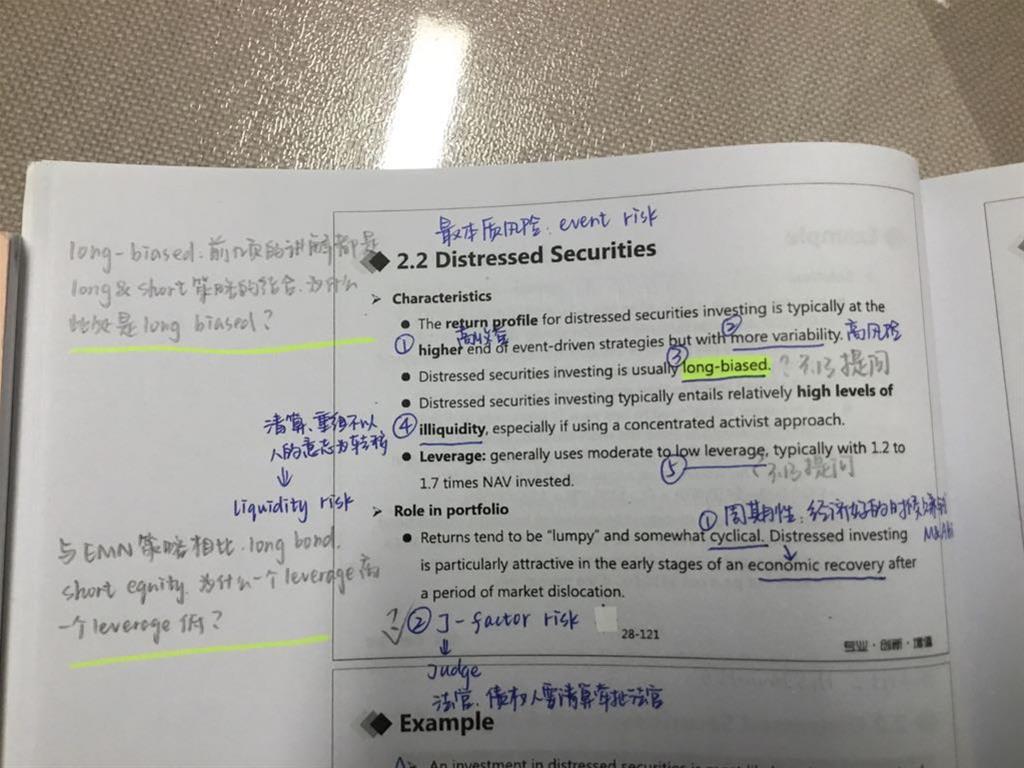 最本质风险: event risk
2.2 Distressed Securities
long-biased: 前几页的讲解都是
long & short 策略的结合, 为什么
此处是 long biased?
Characteristics
The return profile for distressed securities investing is typically at the
高收益
① higher end of event-driven strategies but with ② more variability. 高风险
Distressed securities investing is usually ③ long-biased. ? 3.13 提问
Distressed securities investing typically entails relatively high levels of
④ illiquidity, especially if using a concentrated activist approach.
清算、重组不以
人的意志为转移
↓
liquidity risk
Leverage: generally uses moderate to low leverage, typically with 1.2 to
⑤ 3.13 提问
1.7 times NAV invested.
Role in portfolio
① 周期性: 经济好的时候
Returns tend to be "lumpy" and somewhat cyclical. Distressed investing
is particularly attractive in the early stages of an economic recovery after
a period of market dislocation.
与 EMN 策略相比, long bond,
short equity, 为什么一个 leverage 高
一个 leverage 低?
? ② J-factor risk
↓
Judge
法官、债权人要清算牵扯法官
28-121
专业·创新·增值
Example
An investment in distressed securities is most